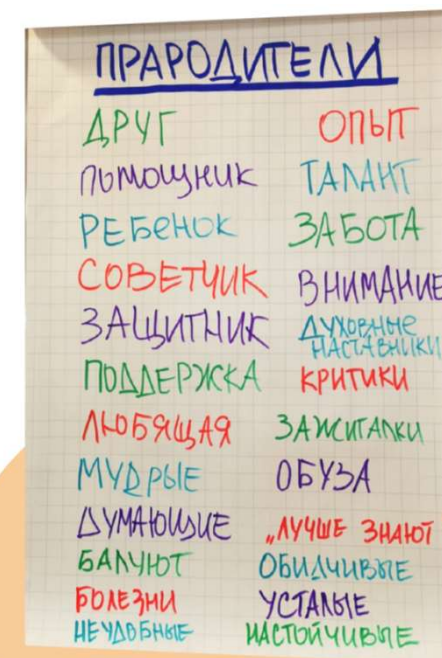 ПРАРОДИТЕЛИ
ДРУГ
ПОМОЩНИК
РЕБЕНОК
СОВЕТЧИК
ЗАЩИТНИК
ПОДДЕРЖКА
ЛЮБЯЩАЯ
МУДРЫЕ
ДУМАЮЩИЕ
БАЛУЮТ
БОЛЕЗНИ
НЕУДОБНЫЕ
ОПЫТ
ТАЛАНТ
ЗАБОТА
ВНИМАНИЕ
ДУХОВНЫЕ
НАСТАВНИКИ
КРИТИКИ
ЗАЖИГАЛКИ
ОБУЗА
„ЛУЧШЕ ЗНАЮТ
ОБИДЧИВЫЕ
УСТАЛЫЕ
НАСТОЙЧИВЫЕ